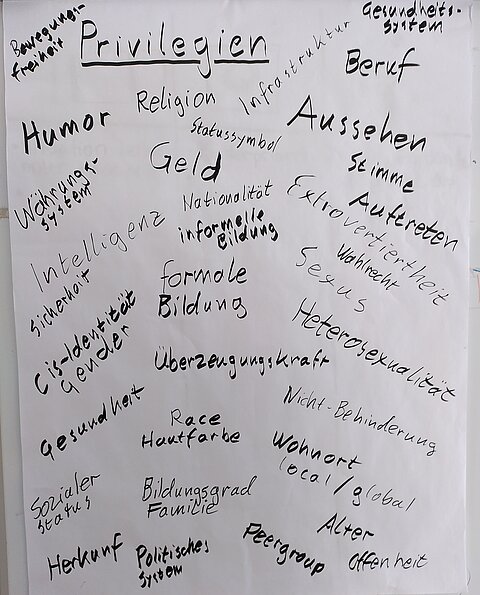 Bewegungs-
freiheit
Privilegien
Gesundheits-
system
Infrastruktur
Beruf
Religion
Humor
Statussymbol
Aussehen
Geld
Stimme
Währungs-
system
Nationalität
Auftreten
informelle
Bildung
Extrovertiertheit
Intelligenz
Wahlrecht
Sicherheit
formale
Bildung
Sexus
Cis-Identität
Gender
Heterosexualität
Überzeugungskraft
Gesundheit
Race
Hautfarbe
Nicht-Behinderung
Wohnort
local/global
Sozialer
Status
Bildungsgrad
Familie
Alter
Herkunf
Politisches
System
Peergroup
Offenheit